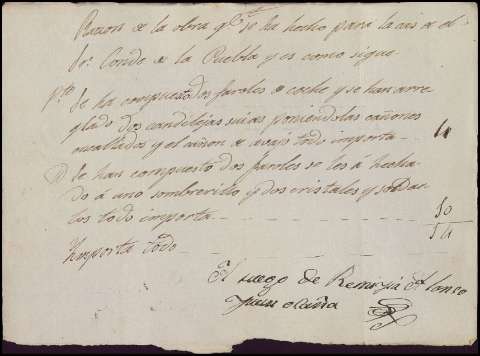 Razon de la obra q.e se ha hecho para la casa de el
S.or Conde de la Puebla y es como sigue
p.te Se ha compuesto dos faroles de coche y se han arre
glado dos candelejas suias poniendolas cañones
encaltados y el cañon de avajo todo importa 4
Se han compuesto dos faroles se les á hecha
do á uno sombrerillo y dos cristales y soldar
los todo importa 50
54
Ymporta todo
A ruego de Remigia Alonso
Juan Ocaña